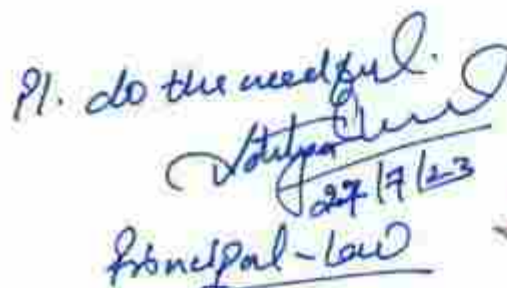 Pl. do the needful.
27/7/23
Principal - Law